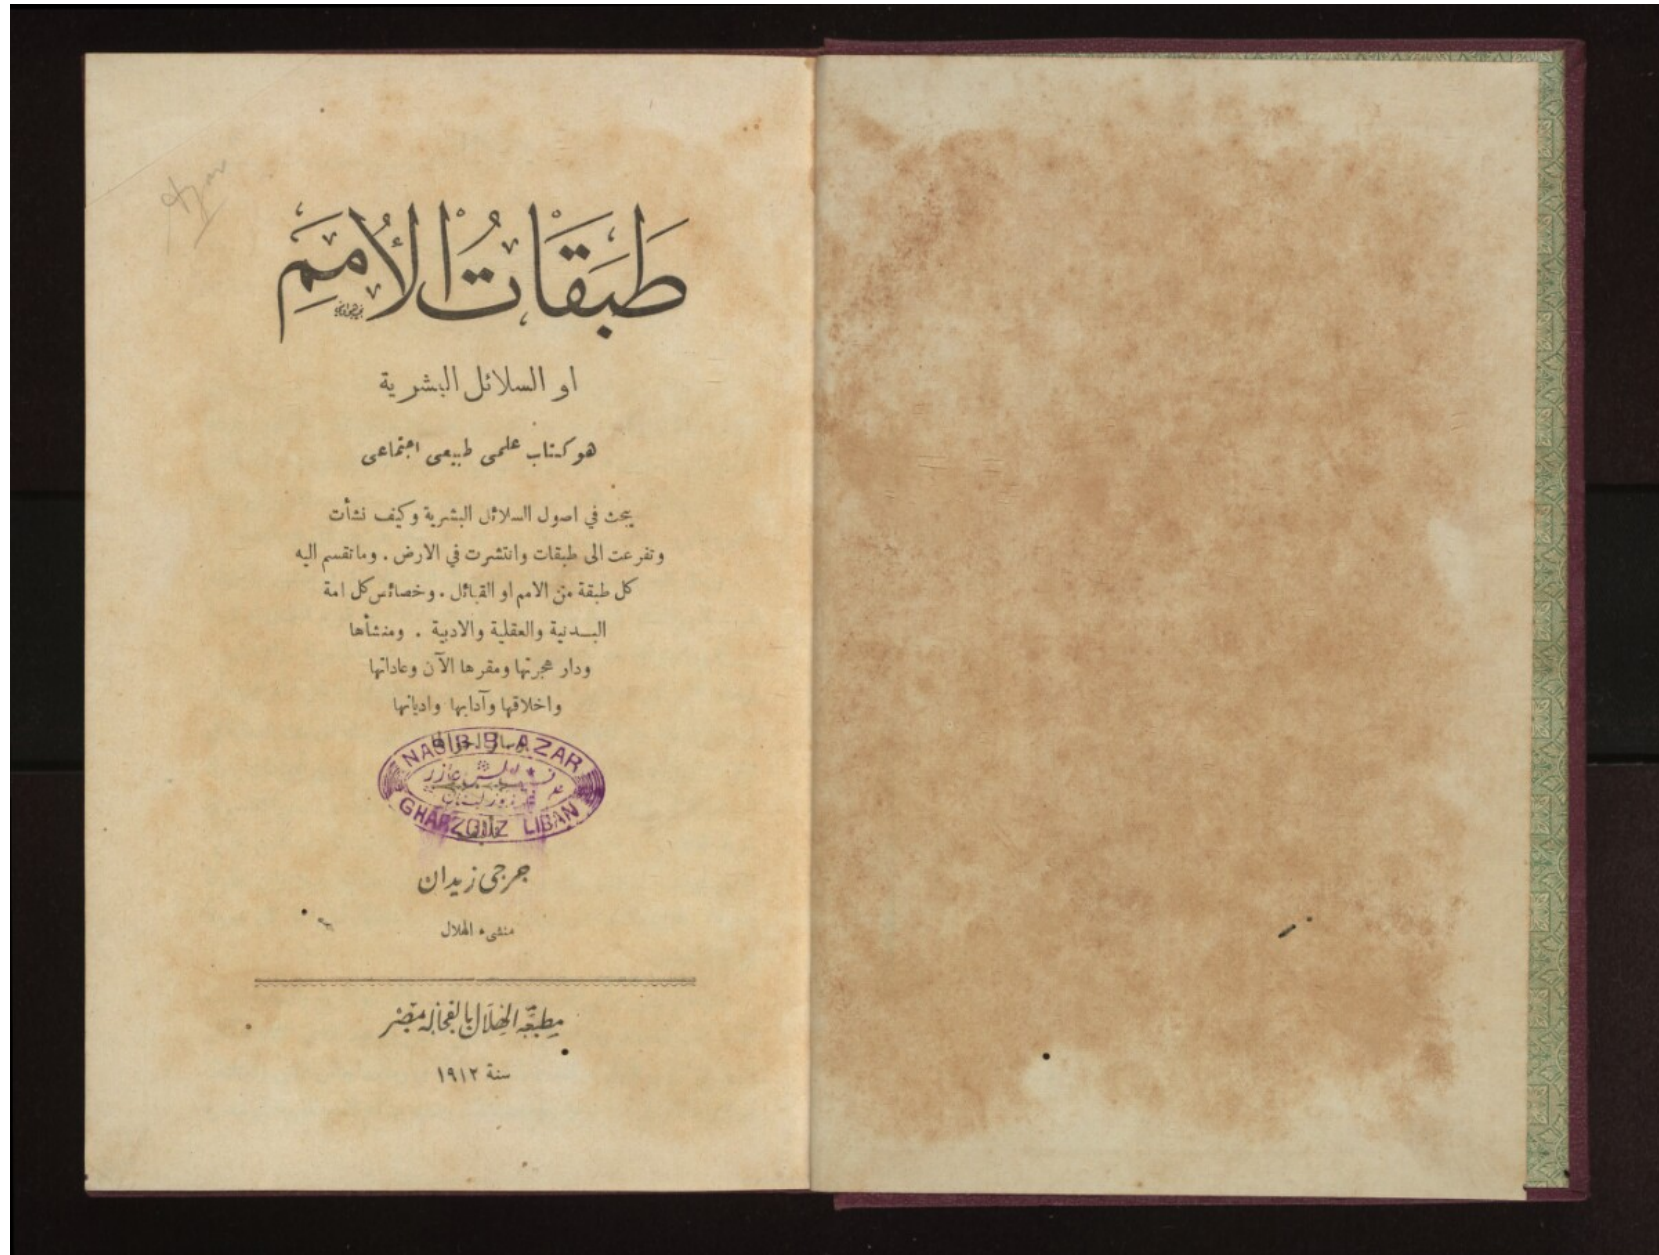 Azar
طَبَقَاتُ الأُمَمِ
او السلائل البشرية
هو كتاب علمي طبيعي اجتماعي
يبحث في اصول السلائل البشرية وكيف نشأت
وتفرعت الى طبقات وانتشرت في الارض . وما تقسم اليه
كل طبقة من الامم او القبائل . وخصائص كل امة
البدنية والعقلية والادبية . ومنشأها
ودار هجرتها ومقرها الآن وعاداتها
واخلاقها وآدابها واديانها
NASIB B. AZAR
عازر
GHARZOUZ LIBAN
جرجي زيدان
منشىء الهلال
مطبعة الهلال بالفجالة بمصر
سنة ١٩١٢